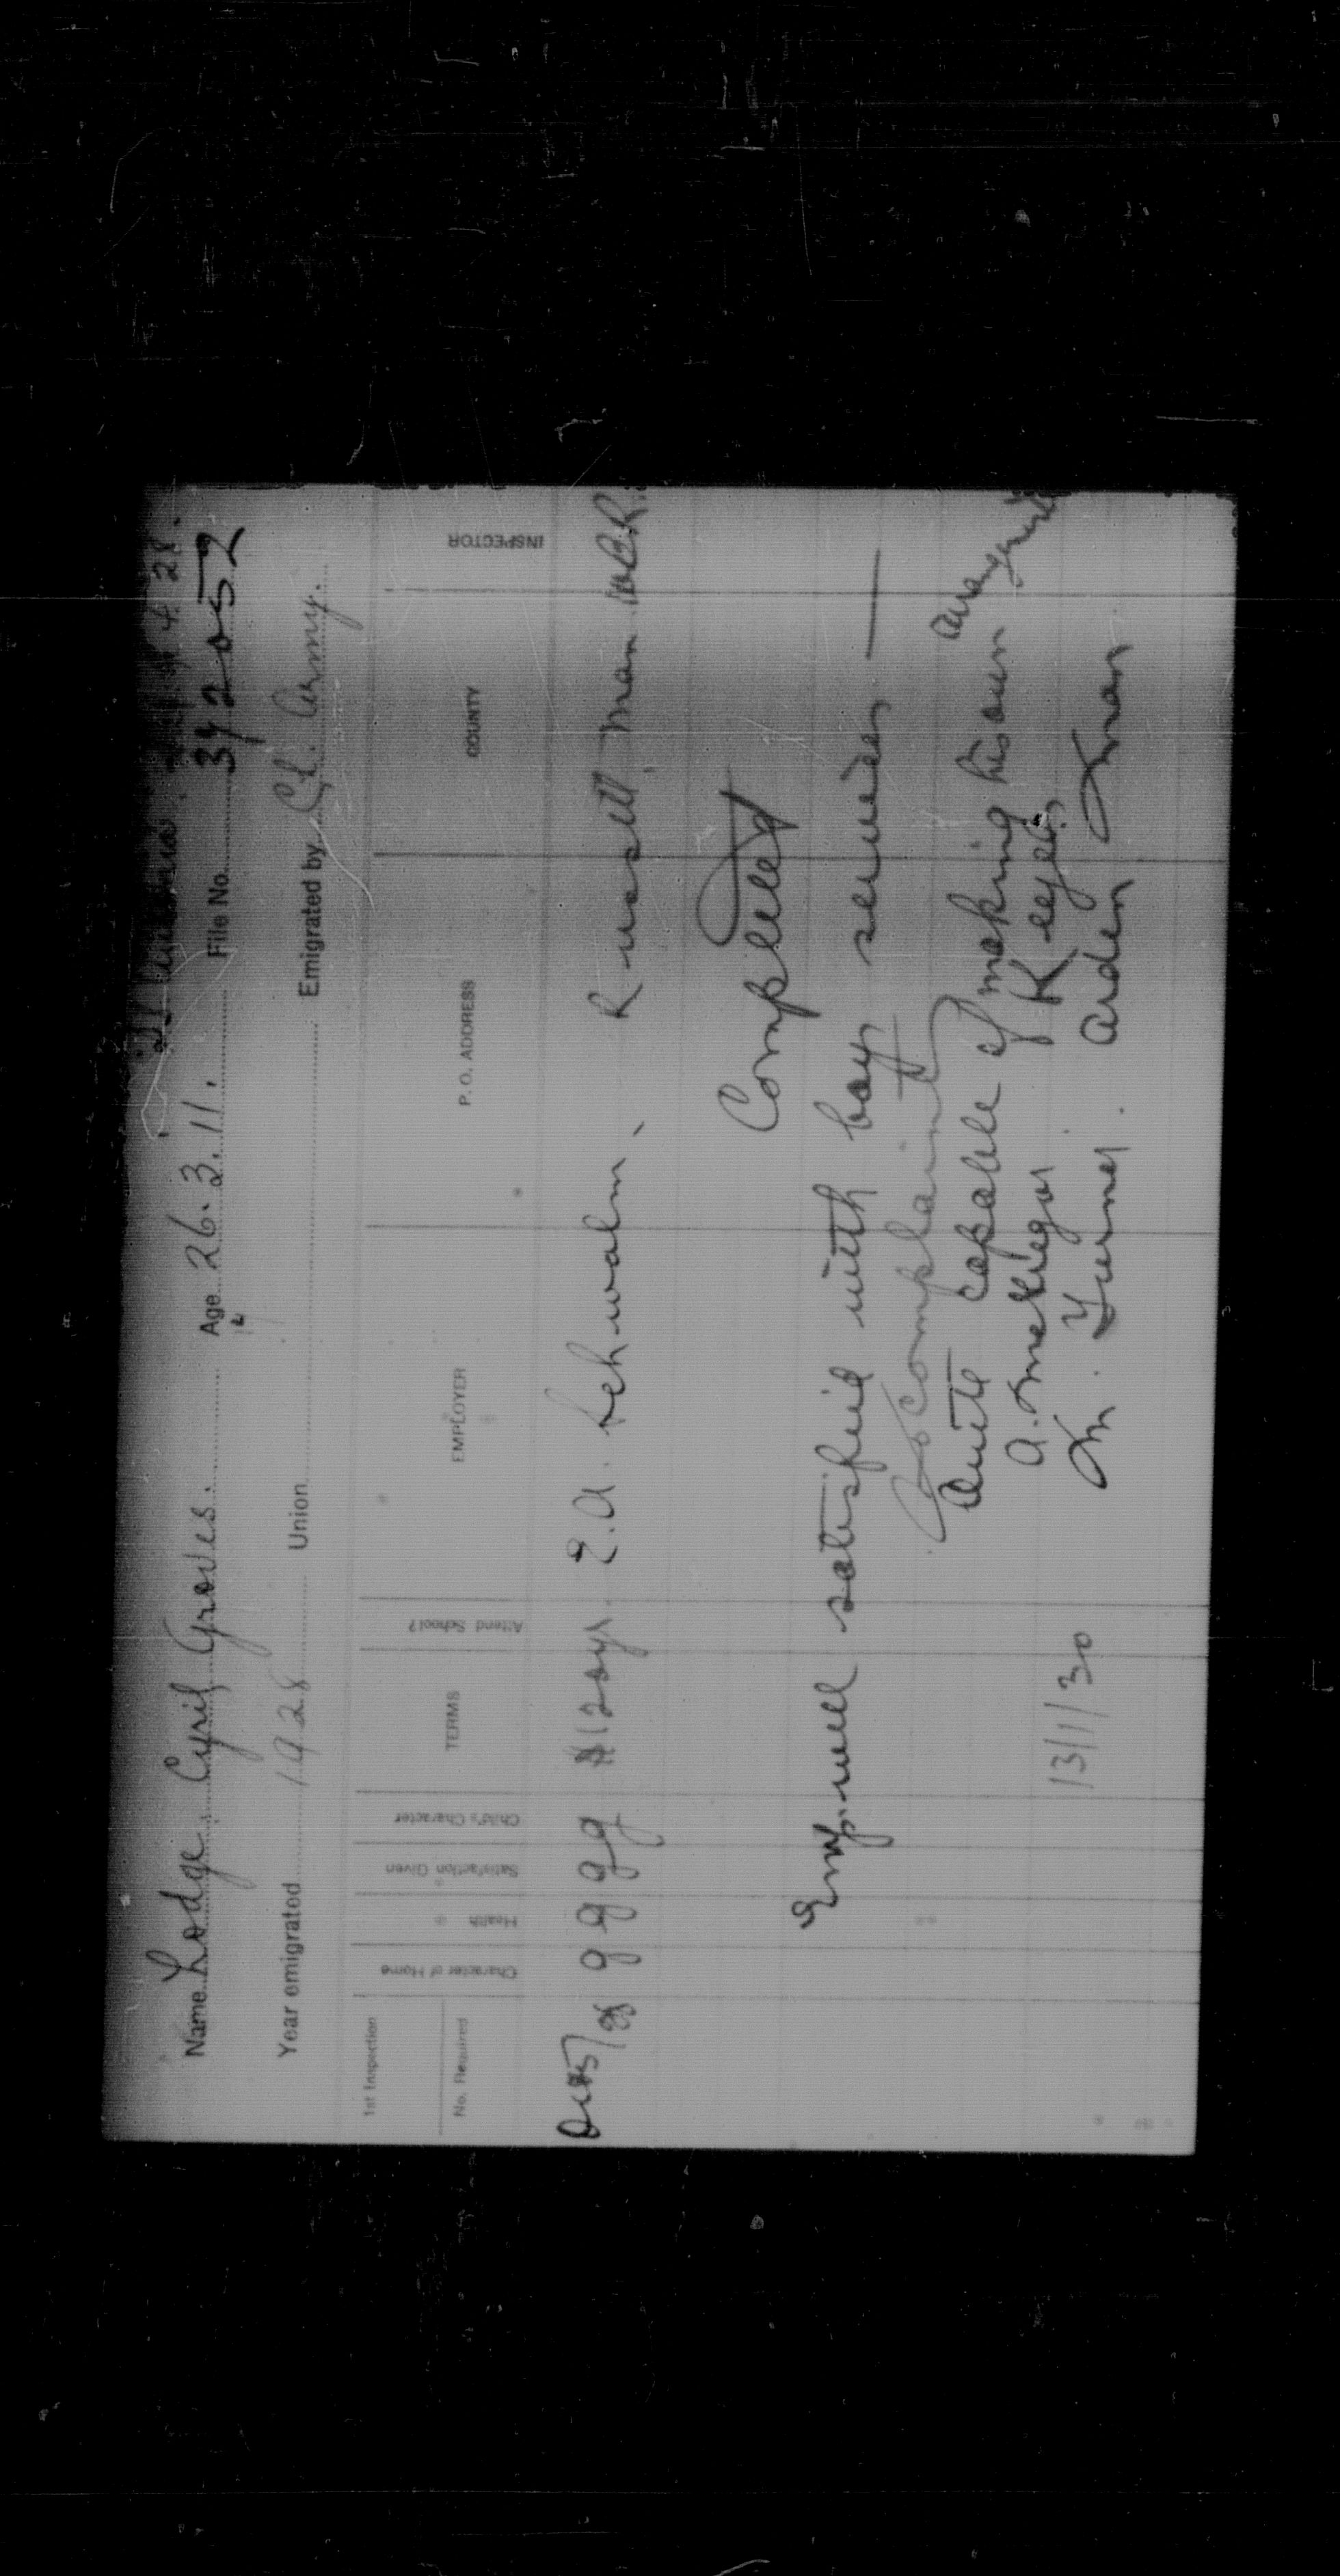 4. 28.
Name Lodge, Cyril Groves. Age 26. 3. 11. File No. 392052
17
Year emigrated 1928 Union Emigrated by Ch. Army.
1st Inspection
No. Required
Character of Home
Health
Satisfaction Given
Child's Character
TERMS
Attend School?
EMPLOYER
P. O. ADDRESS
COUNTY
INSPECTOR
g g g g $120 yr E. A. Schwalm, Russell Man
Completed
Emp. well satisfied with boys services —
No complaints
Quite capable of making his own arrangements
A. McGregor Keyes
13/1/30 M. Turner. Arden Man